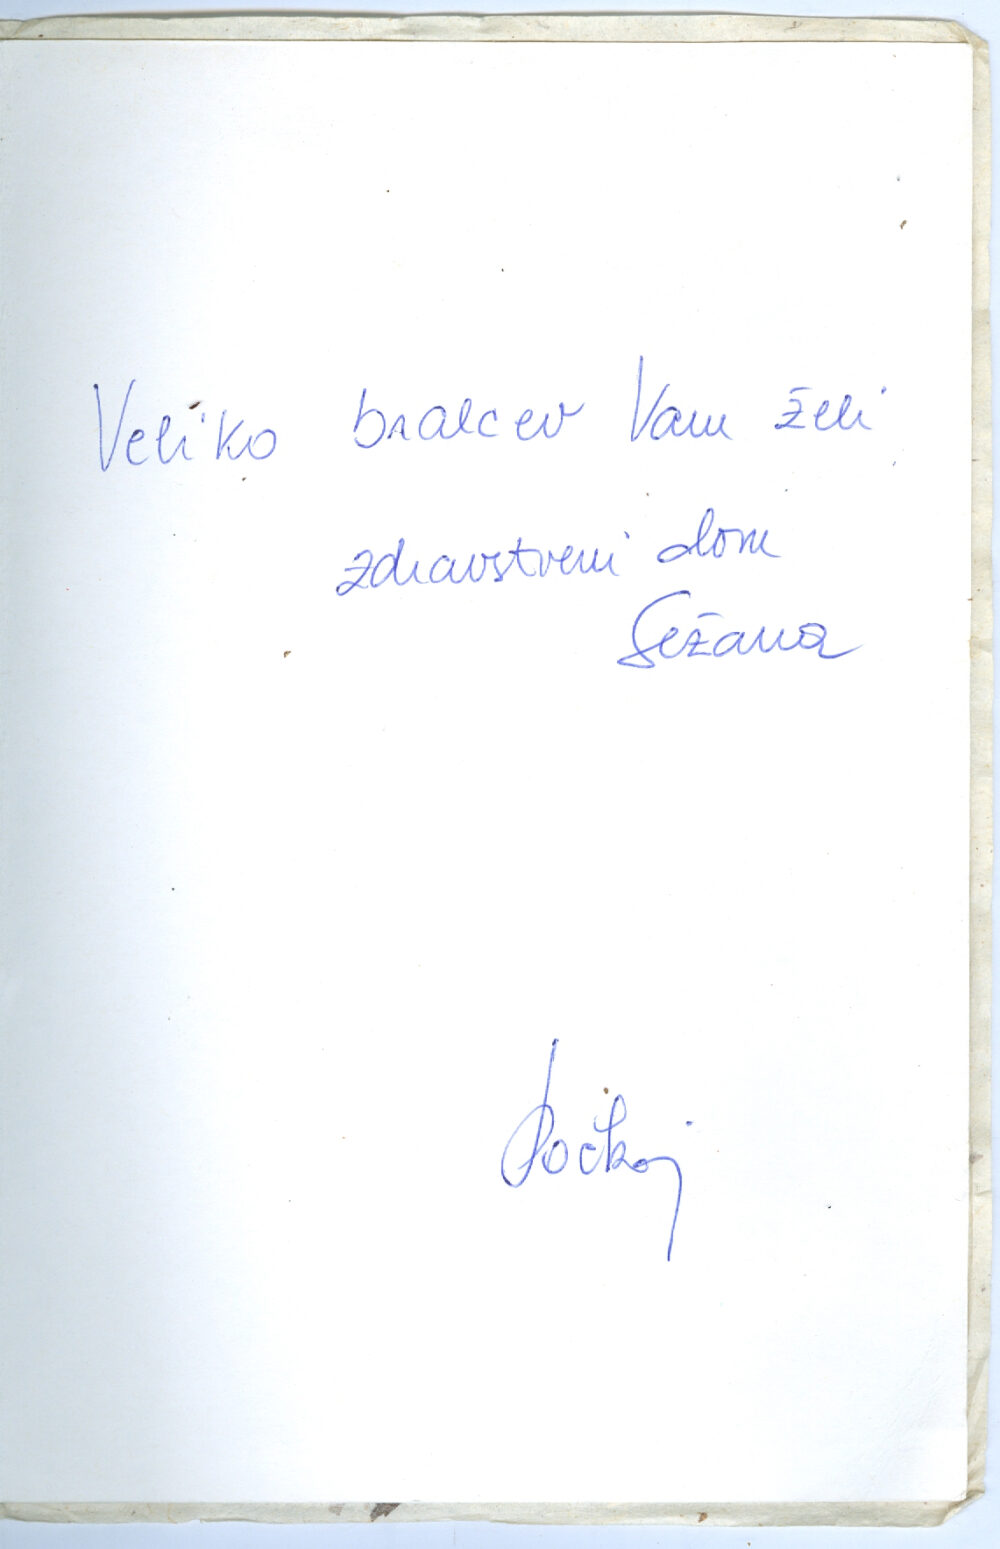 Veliko bralcev Vam želi
zdravstveni dom
Sežana